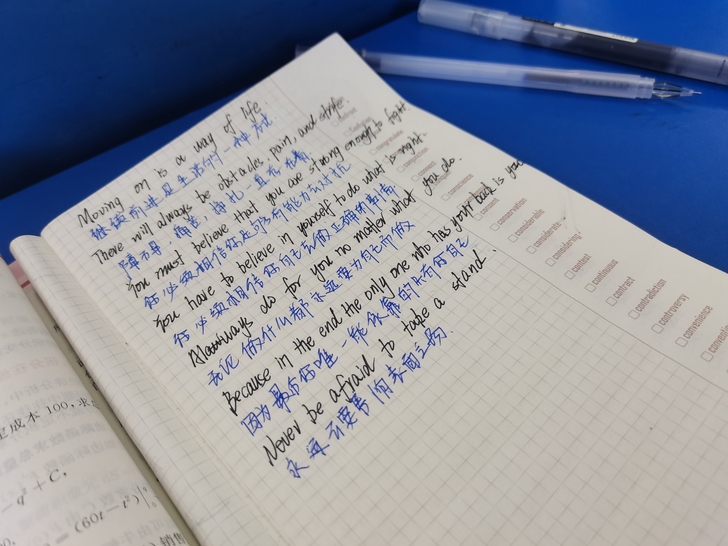 Moving on is a way of life.
继续前进是生活的一种方式
There will always be obstacles, pain, and strife.
障碍，痛苦，挣扎一直在
You must believe that you are strong enough to fight.
你必须相信你足够有能力去对抗
You have to believe in yourself to do what is right.
你必须相信你自己去做正确的事情
Always do for you no matter what you do.
无论做什么都永远要为自己而做
Because in the end the only one who has your back is you
因为最后你唯一能依靠的只有你自己
Never be afraid to take a stand.
永远不要害怕表
conservation
considerable
considerate
considering
contest
continuous
contract
contradiction
controversy
convenience
定成本 100，求
-q² + C,
= (60t - t²)